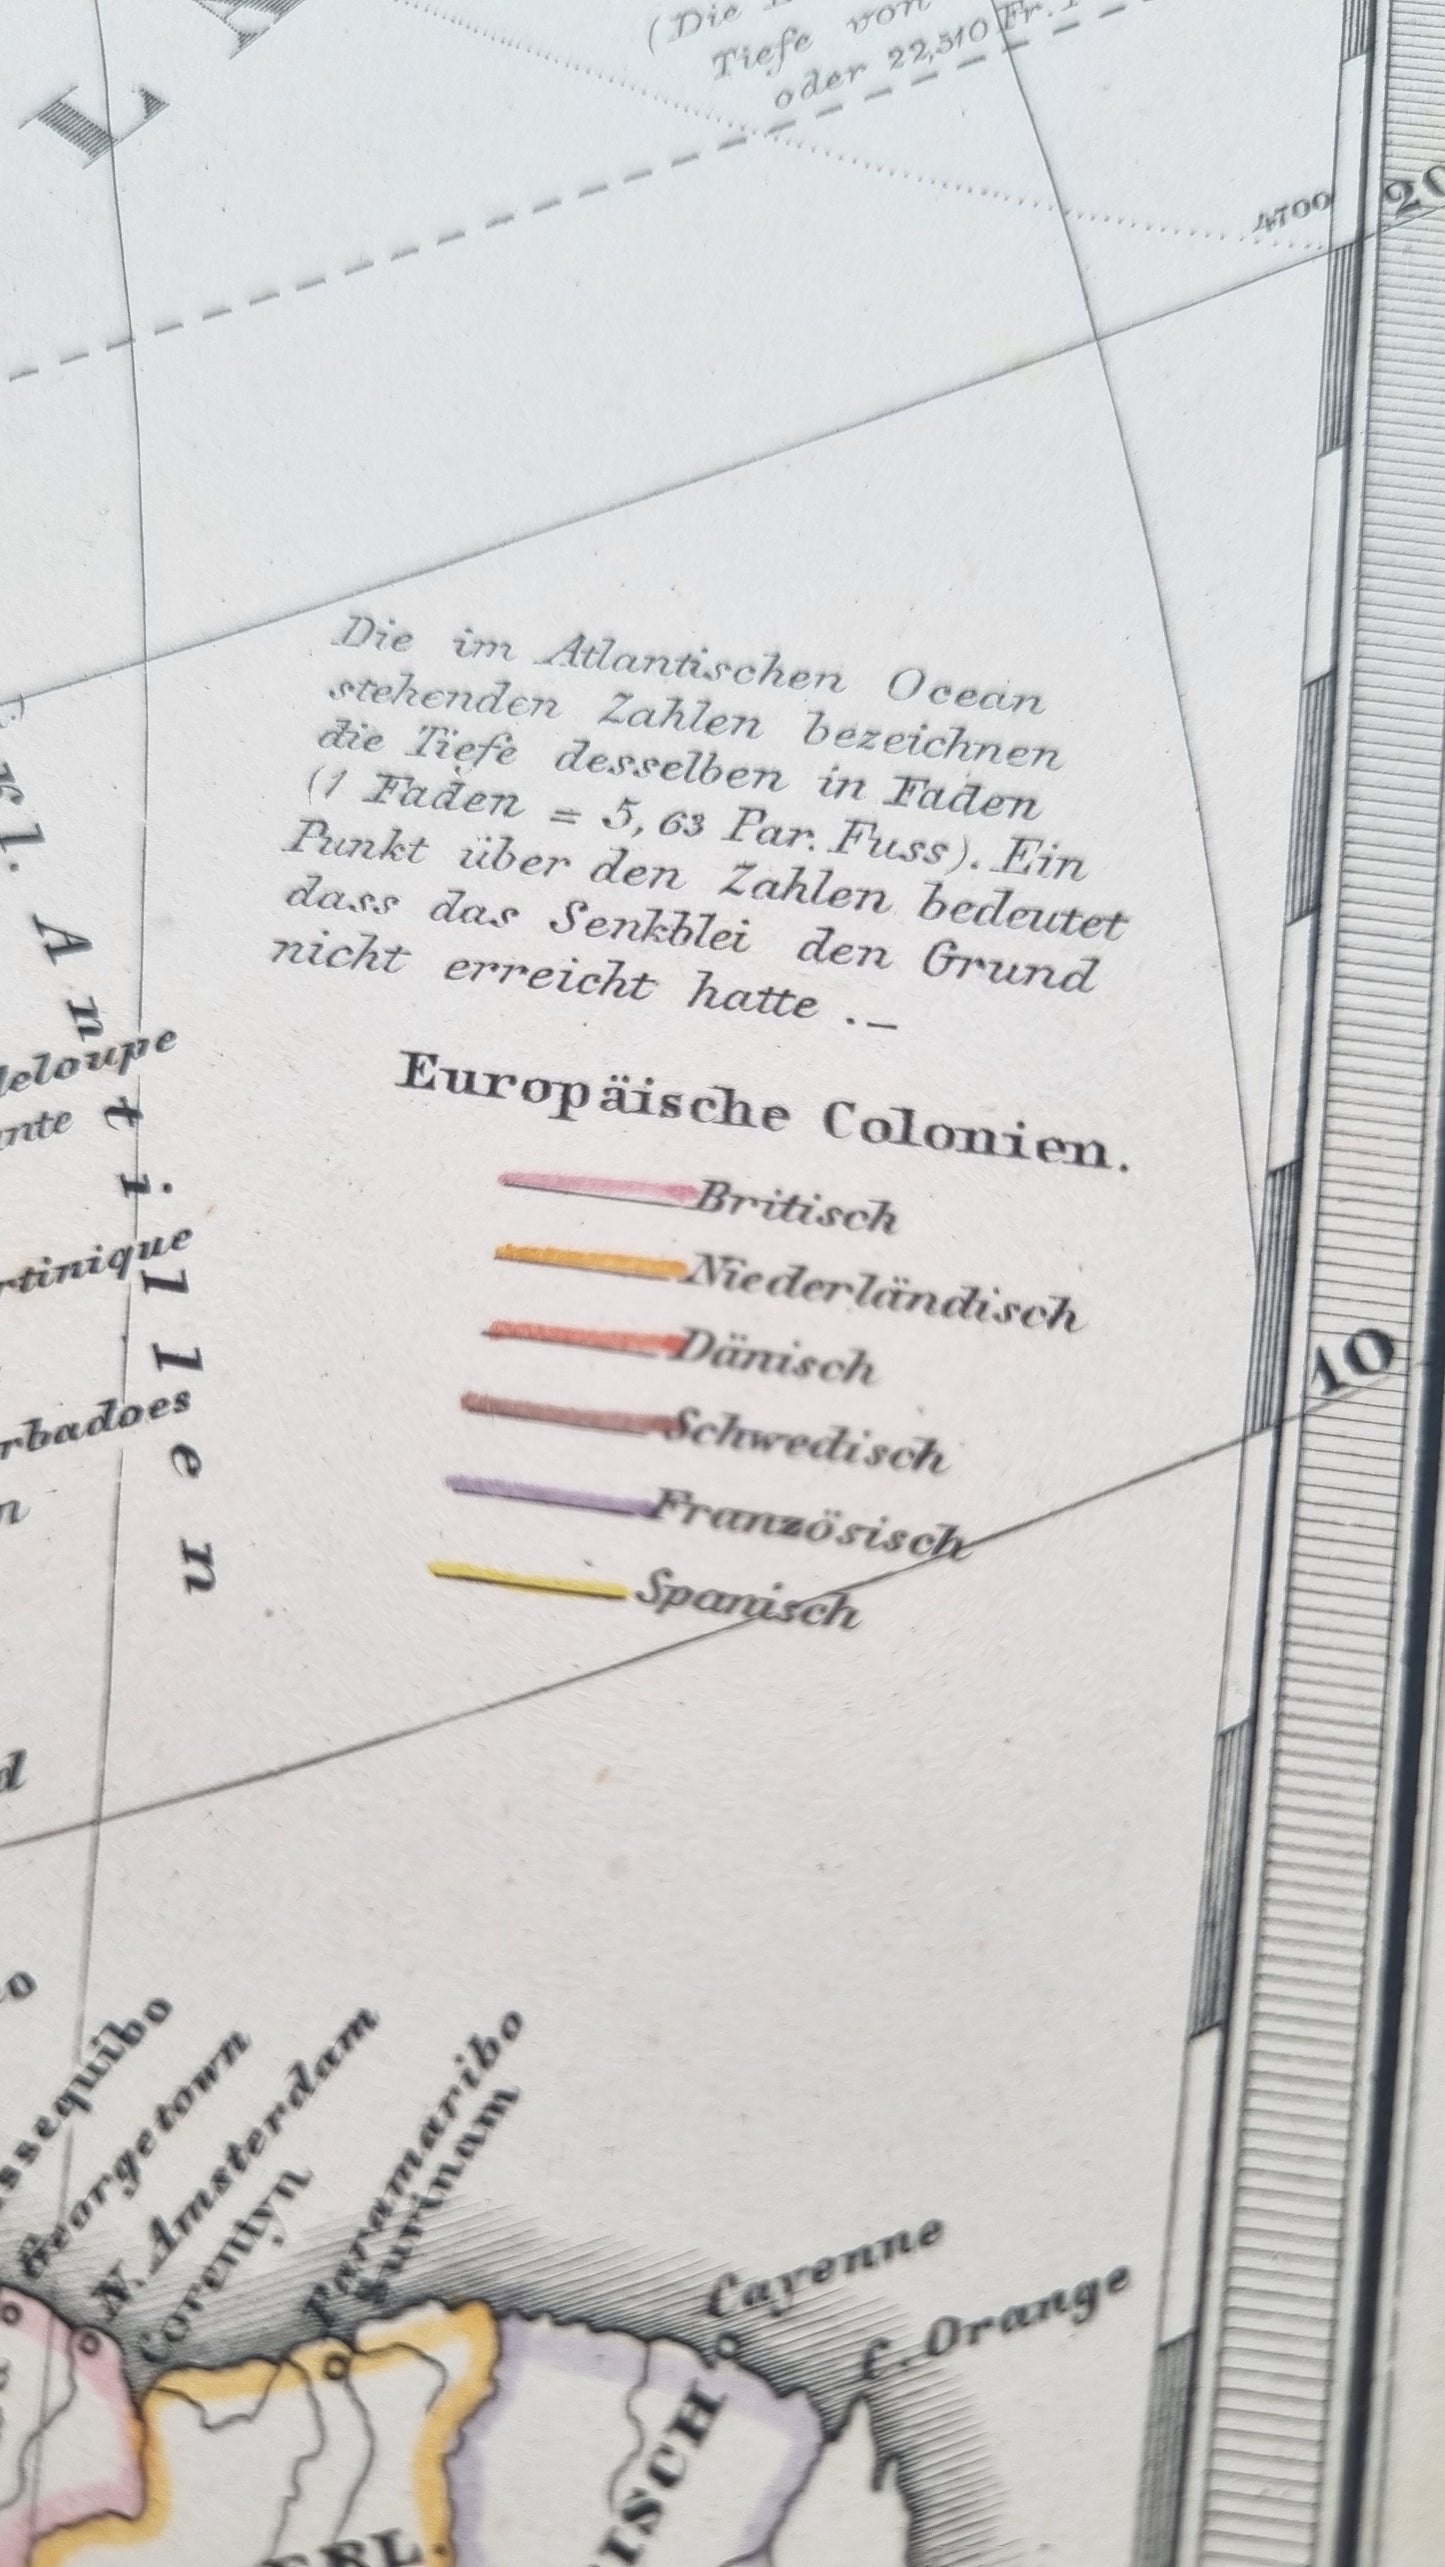 (Die
Tiefe von
oder 22,510 Fr.
4700
20
Die im Atlantischen Ocean
stehenden Zahlen bezeichnen
die Tiefe desselben in Faden
(1 Faden = 5,63 Par. Fuss). Ein
Punkt über den Zahlen bedeutet
dass das Senkblei den Grund
nicht erreicht hatte . _
Antillen
Europäische Colonien.
Britisch
Niederländisch
Dänisch
Schwedisch
Französisch
Spanisch
10
Georgetown
N. Amsterdam
Corentyn
Paramaribo
Surinam
Cayenne
C. Orange